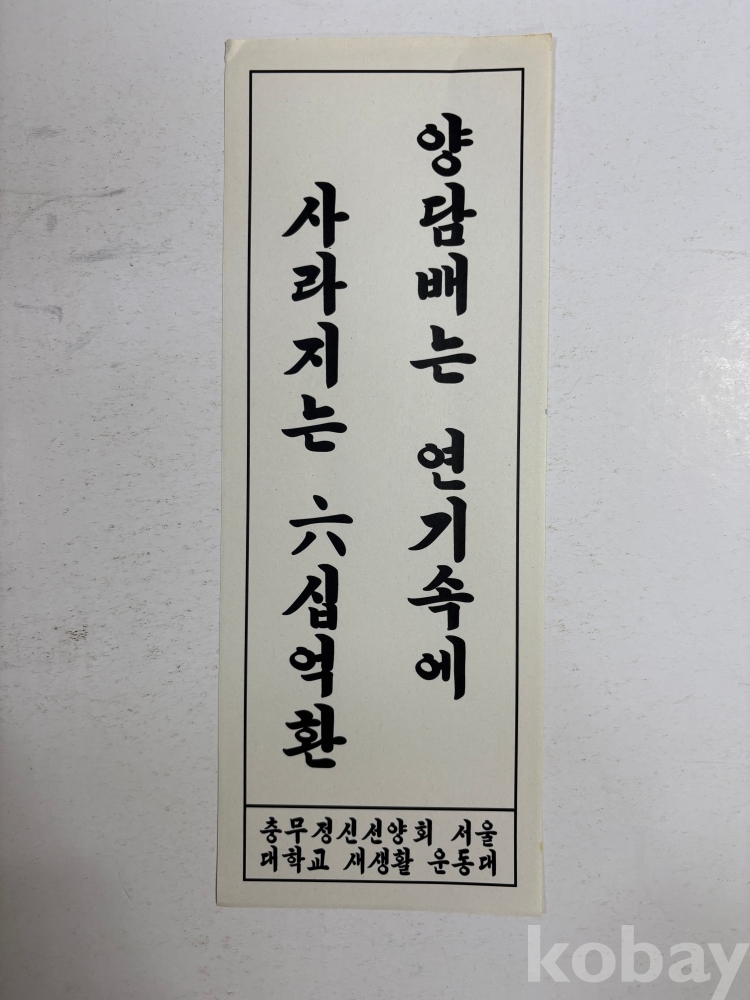 양담배는 연기속에
사라지는 六십억환
충무정신선양회 서울
대학교 새생활 운동대
kobay